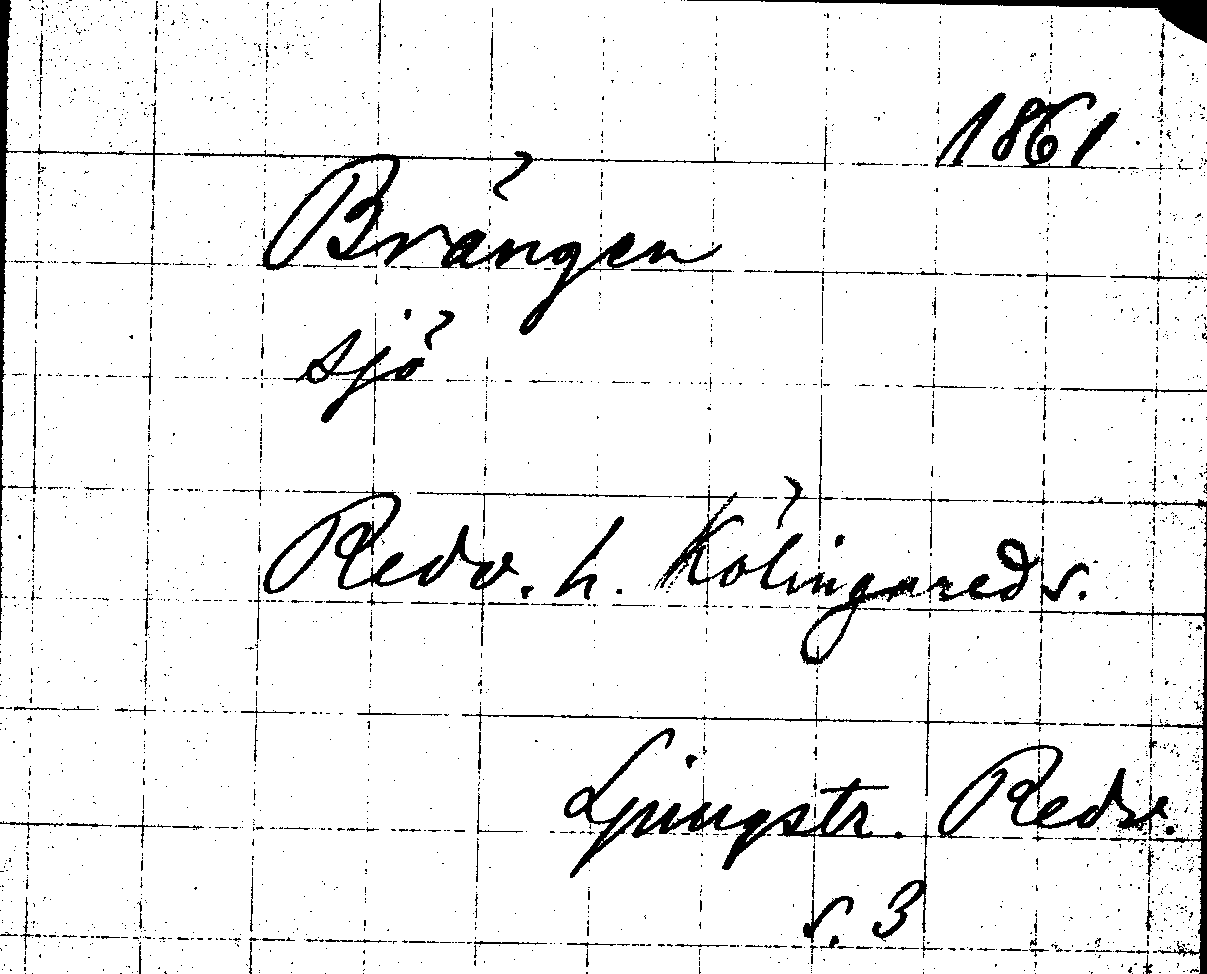 1861
Brängen
sjö
Redv. h. Kölingareds s.
Ljungstr. Redv.
s. 3